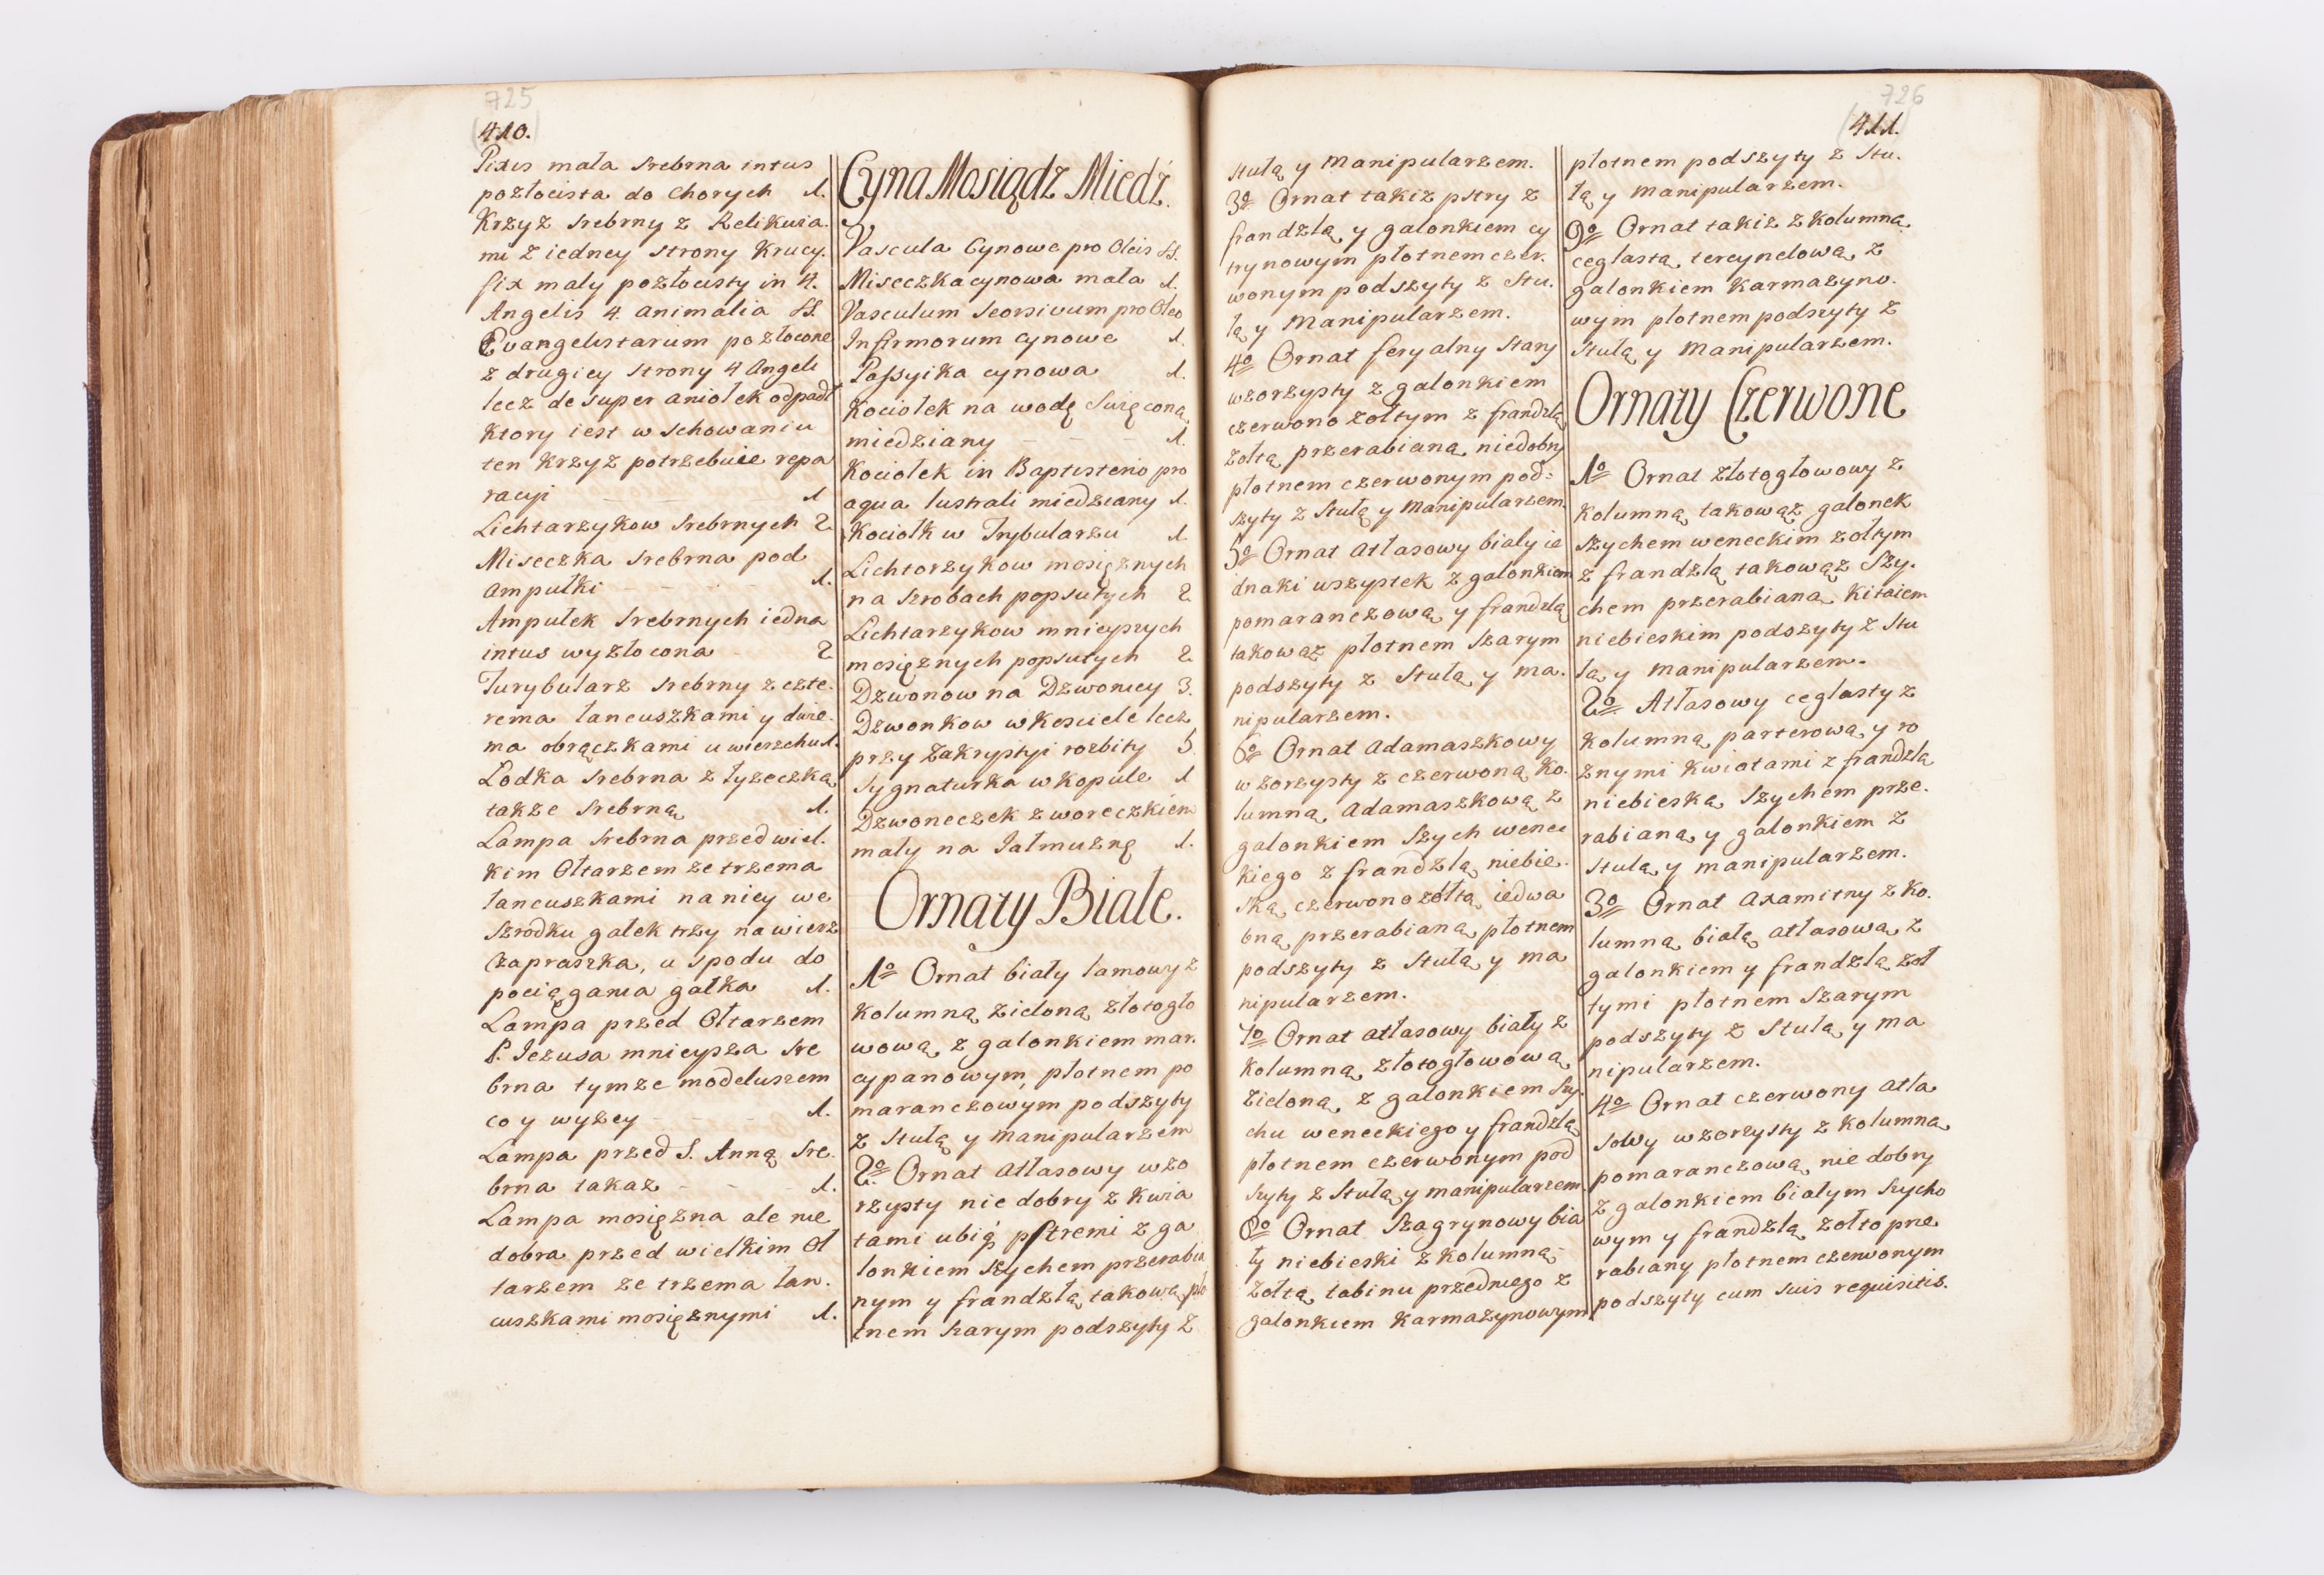 725
410.
Pixis mała srebrna intus
pozłocista do Chorych 1.
Krzyz srebrny z Relikwia.
mi z iedney strony Krucy.
fix maly pozłocisty in 4.
Angelis 4. animalia SS.
Evangelistarum pozłocone
z drugiey strony 4 Angeli
lecz de super aniołek odpadł
Ktory iest w schowaniu
ten Krzyz potrzebuie repa
racyi - - - 1
Lichtarzykow srebrnych 2
Miseczka srebrna pod
Ampułki - - - 1.
Ampułek srebrnych iedna
intus wyzłocona - 2
Turybularz srebrny z czte.
rema łancuszkami y dwie.
ma obrączkami u wierzchu 1.
Łodka srebrna z łyzeczką
takze srebrną 1.
Lampa srebrna przed wiel.
kim Ołtarzem ze trzema
łancuszkami na niey we
szrodku gałek trzy na wierz
zapraszka, u spodu do
pociągania gałka 1.
Lampa przed Ołtarzem
P. Jezusa mnieysza sre
brna tymze modeluszem
co y wyzey - - 1.
Lampa przed S. Anną sre.
brna takaz - - - 1.
Lampa mosięzna ale nie
dobra przed wielkim Oł
tarzem ze trzema łan.
cuszkami mosięznymi 1.
Cyna Mosiądz Miedź.
Vascula Cynowe pro Oleis SS.
Miseczka cynowa mała 1.
Vasculum Seorsivum pro Oleo
Infirmorum cynowe 1.
Passyika cynowa 1.
Kociołek na wodę swięconą
miedziany - - - 1.
Kociołek in Baptisterio pro
aqua lustrali miedziany 1.
Kociołk w Trybularzu 1
Lichtorzykow mosięznych
na szrobach popsutych 2
Lichtarzykow mnieyszych
mosięznych popsutych 2
Dzwonow na Dzwonicy 3.
Dzwonkow w kosciele lecz
przy Zakrystyi rozbity 5.
Sygnaturka w Kopule 1
Dzwoneczek z woreczkiem
mały na Jałmuznę 1.
Ornaty Białe.
1º Ornat biały lamowy z
Kolumną zieloną złotogło
wową z galonkiem mar.
cypanowym, płotnem po
maranczowym podszyty
z Stułą y Manipularzem
2º Ornat Atłasowy wzo
rzysty nie dobry z kwia
tami ubiq3 pstremi z ga
lonkiem szychem przerabia
nym y frandzłą takową pło
tnem szarym podszyty z
726
411.
stułą y Manipularzem.
3º Ornat takiz pstry z
frandzlą y galonkiem cy
trynowym płotnem czer.
wonym podszyty z Stu.
łą y Manipularzem.
4º Ornat feryalny stary
wzorzysty z galonkiem
czerwono zołtym z frandzlą
zołtą przerabianą niedobry
płotnem czerwonym pod=
szyty z Stułą y Manipularzem.
5º Ornat Atłasowy biały ie
dnaki wszystek z galonkiem
pomaranczową y frandzlą
takowąz płotnem szarym
podszyty z Stułą y ma.
nipularzem.
6º Ornat Adamaszkowy
wzorzysty z czerwoną Ko.
lumną Adamaszkową z
galonkiem szych wenec
kiego z frandzlą niebie.
ską czerwono zołtą iedwa
bną przerabianą płotnem
podszyty z Stułą y ma
nipularzem.
7º Ornat atłasowy biały z
Kolumną złotogłowową
zieloną z galonkiem szy.
chu weneckiego y frandzlą
płotnem czerwonym pod
szyty z Stułą y manipularzem.
8º Ornat Szagrynowy bia
ły niebieski z kolumną
zołtą tabinu przedniego z
galonkiem karmazynowym
płotnem podszyty z Stu.
łą y Manipularzem.
9º Ornat takiz z kolumną
ceglastą tercynelową z
galonkiem Karmazyno.
wym płotnem podszyty z
Stułą y Manipularzem.
Ornaty Czerwone
1º Ornat złotogłowowy z
Kolumną takowąz galonek
szychem weneckim zołtym
z frandzlą takowąz szy.
chem przerabianą Kitaiem
niebieskim podszyty z Stu
łą y Manipularzem.
2º Atłasowy ceglasty z
kolumną parterową y ro
znymi kwiatami z frandzlą
niebieską szychem prze.
rabianą y galonkiem z
stułą y manipularzem.
3º Ornat Axamitny z ko.
lumną białą atłasową z
galonkiem y frandzlą zoł
tymi płotnem szarym
podszyty z Stułą y ma
nipularzem.
4º Ornat czerwony atła
sowy wzorzysty z kolumną
pomaranczową nie dobry
z galonkiem białym szycho
wym y frandzlą zołto prze
rabiany płotnem czerwonym
podszyty cum suis requisitis.